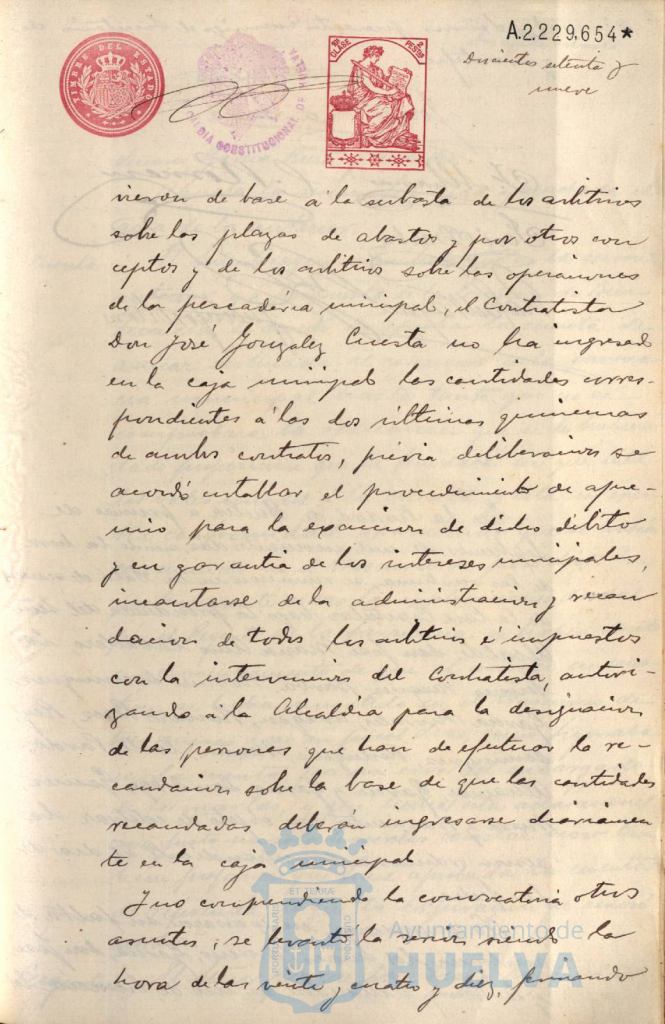 A.2.229,654*
Doscientos setenta y
nueve
TIMBRE DEL ESTADO
ALCALDIA CONSTITUCIONAL DE HUELVA
11ª CLASE
PESETAS
vieron de base á la subasta de los arbitrios
sobre las plazas de abastos y por otros con
ceptos y de los arbitrios sobre las operaciones
de la pescadéria municipal, el Contratista
Don José Gonzalez Cuesta no ha ingresado
en la caja municipal las cantidades corres-
pondientes á las dos últimas quincenas
de ambos contratos, prévia deliberacion se
acordó entablar el procedimiento de apre-
mio para la exaccion de dicho débito
y en garantia de los intereses municipales,
incautarse de la administracion y recau
dacion de todos los arbitrios é impuestos
con la intervencion del Contratista, autori-
zando á la Alcaldia para la designacion
de las personas que han de efectuar la re-
caudacion sobre la base de que las cantidades
recaudadas deberán ingresarse diariamen
te en la caja municipal
Y no comprendiendo la convocatoria otros
asuntos, se levantó la sesion siendo la
hora de las veinte y cuatro y diez, firmando
Ayuntamiento de
HUELVA